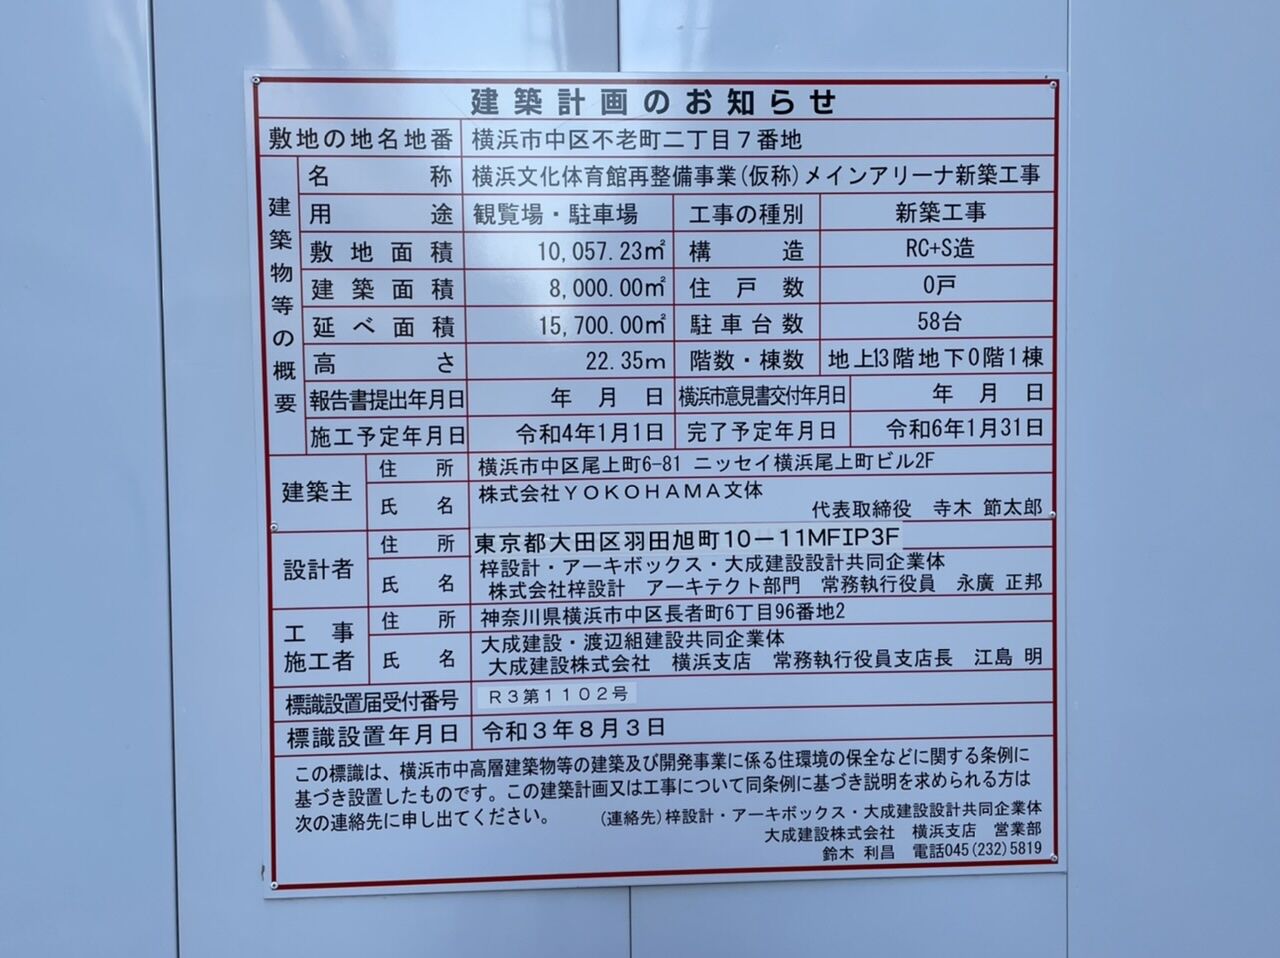 建築計画のお知らせ
敷地の地名地番 横浜市中区不老町二丁目7番地
建築物等の概要
名称 横浜文化体育館再整備事業(仮称)メインアリーナ新築工事
用途 観覧場・駐車場 工事の種別 新築工事
敷地面積 10,057.23㎡ 構造 RC+S造
建築面積 8,000.00㎡ 住戸数 0戸
延べ面積 15,700.00㎡ 駐車台数 58台
高さ 22.35m 階数・棟数 地上13階地下0階1棟
報告書提出年月日 年 月 日 横浜市意見書交付年月日 年 月 日
施工予定年月日 令和4年1月1日 完了予定年月日 令和6年1月31日
建築主 住所 横浜市中区尾上町6-81 ニッセイ横浜尾上町ビル2F
氏名 株式会社YOKOHAMA文体
代表取締役 寺木 節太郎
設計者 住所 東京都大田区羽田旭町10-11MFIP3F
氏名 梓設計・アーキボックス・大成建設設計共同企業体
株式会社梓設計 アーキテクト部門 常務執行役員 永廣 正邦
工事施工者 住所 神奈川県横浜市中区長者町6丁目96番地2
氏名 大成建設・渡辺組建設共同企業体
大成建設株式会社 横浜支店 常務執行役員支店長 江島 明
標識設置届受付番号 R3第1102号
標識設置年月日 令和3年8月3日
この標識は、横浜市中高層建築物等の建築及び開発事業に係る住環境の保全などに関する条例に
基づき設置したものです。この建築計画又は工事について同条例に基づき説明を求められる方は
次の連絡先に申し出てください。 (連絡先)梓設計・アーキボックス・大成建設設計共同企業体
大成建設株式会社 横浜支店 営業部
鈴木 利昌 電話045(232)5819